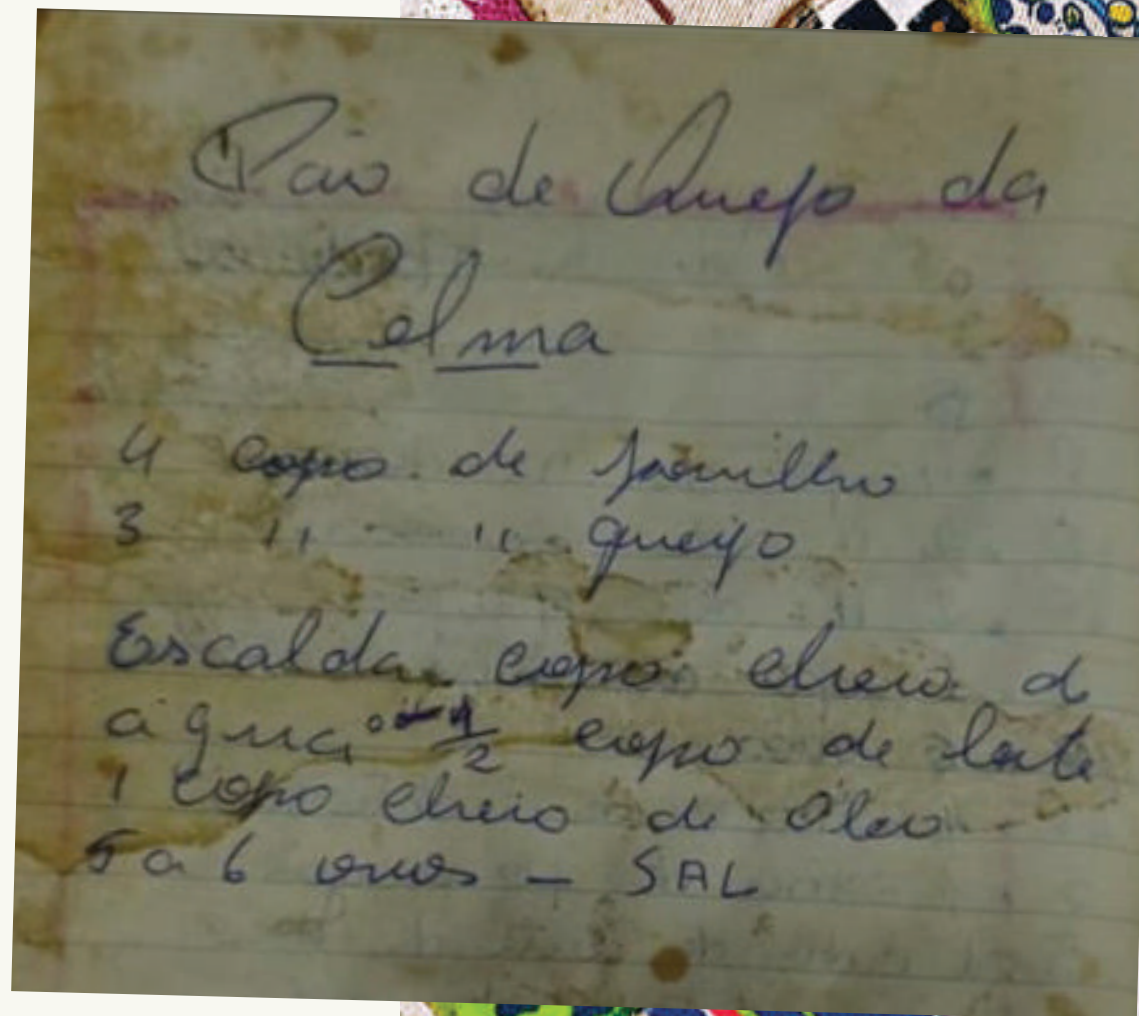 Pão de Queijo da
Celma
4 copo de polvilho
3 " " queijo
Escalda copo cheio d
água 1/2 copo de leite
1 copo cheio de óleo
5 a 6 ovos – SAL